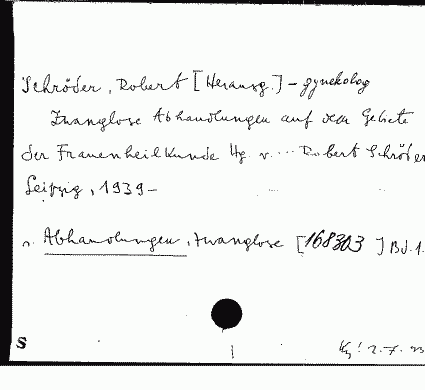 Schröder, Robert [Herausg.] - gynekolog
Zwanglose Abhandlungen auf dem Gebiete
der Frauenheilkunde Hg. v. ... Robert Schröder
Leipzig, 1939 -
v. Abhandlungen, zwanglose [168303] Bd. 1.
S